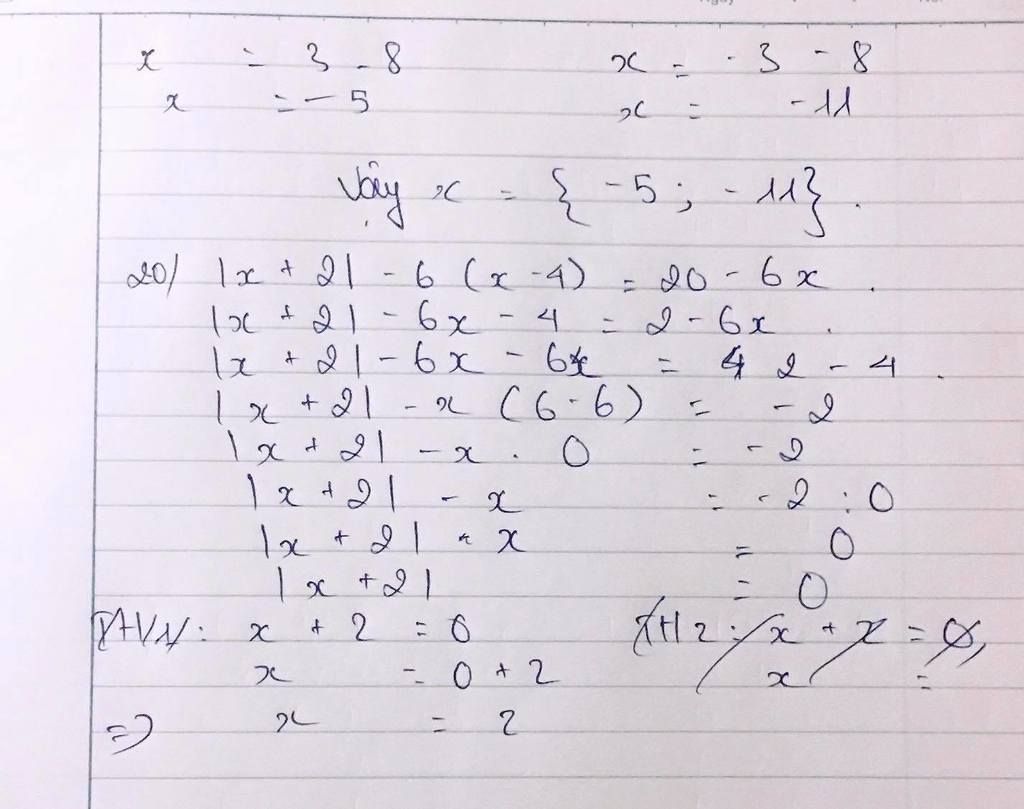 x = 3 - 8 x = -3 - 8
x = -5 x = -11
Vậy x = { -5 ; -11 } .
20/ |x + 2| - 6 (x - 4) = 20 - 6x .
|x + 2| - 6x - 4 = 2 - 6x .
|x + 2| - 6x - 6x = 2 - 4 .
|x + 2| - x (6 - 6) = -2
|x + 2| - x . 0 = -2
|x + 2| - x = -2 : 0
|x + 2| - x = 0
|x + 2| = 0
x + 2 = 0 TH2: x + x = 0
x = 0 + 2 x =
=> x = 2